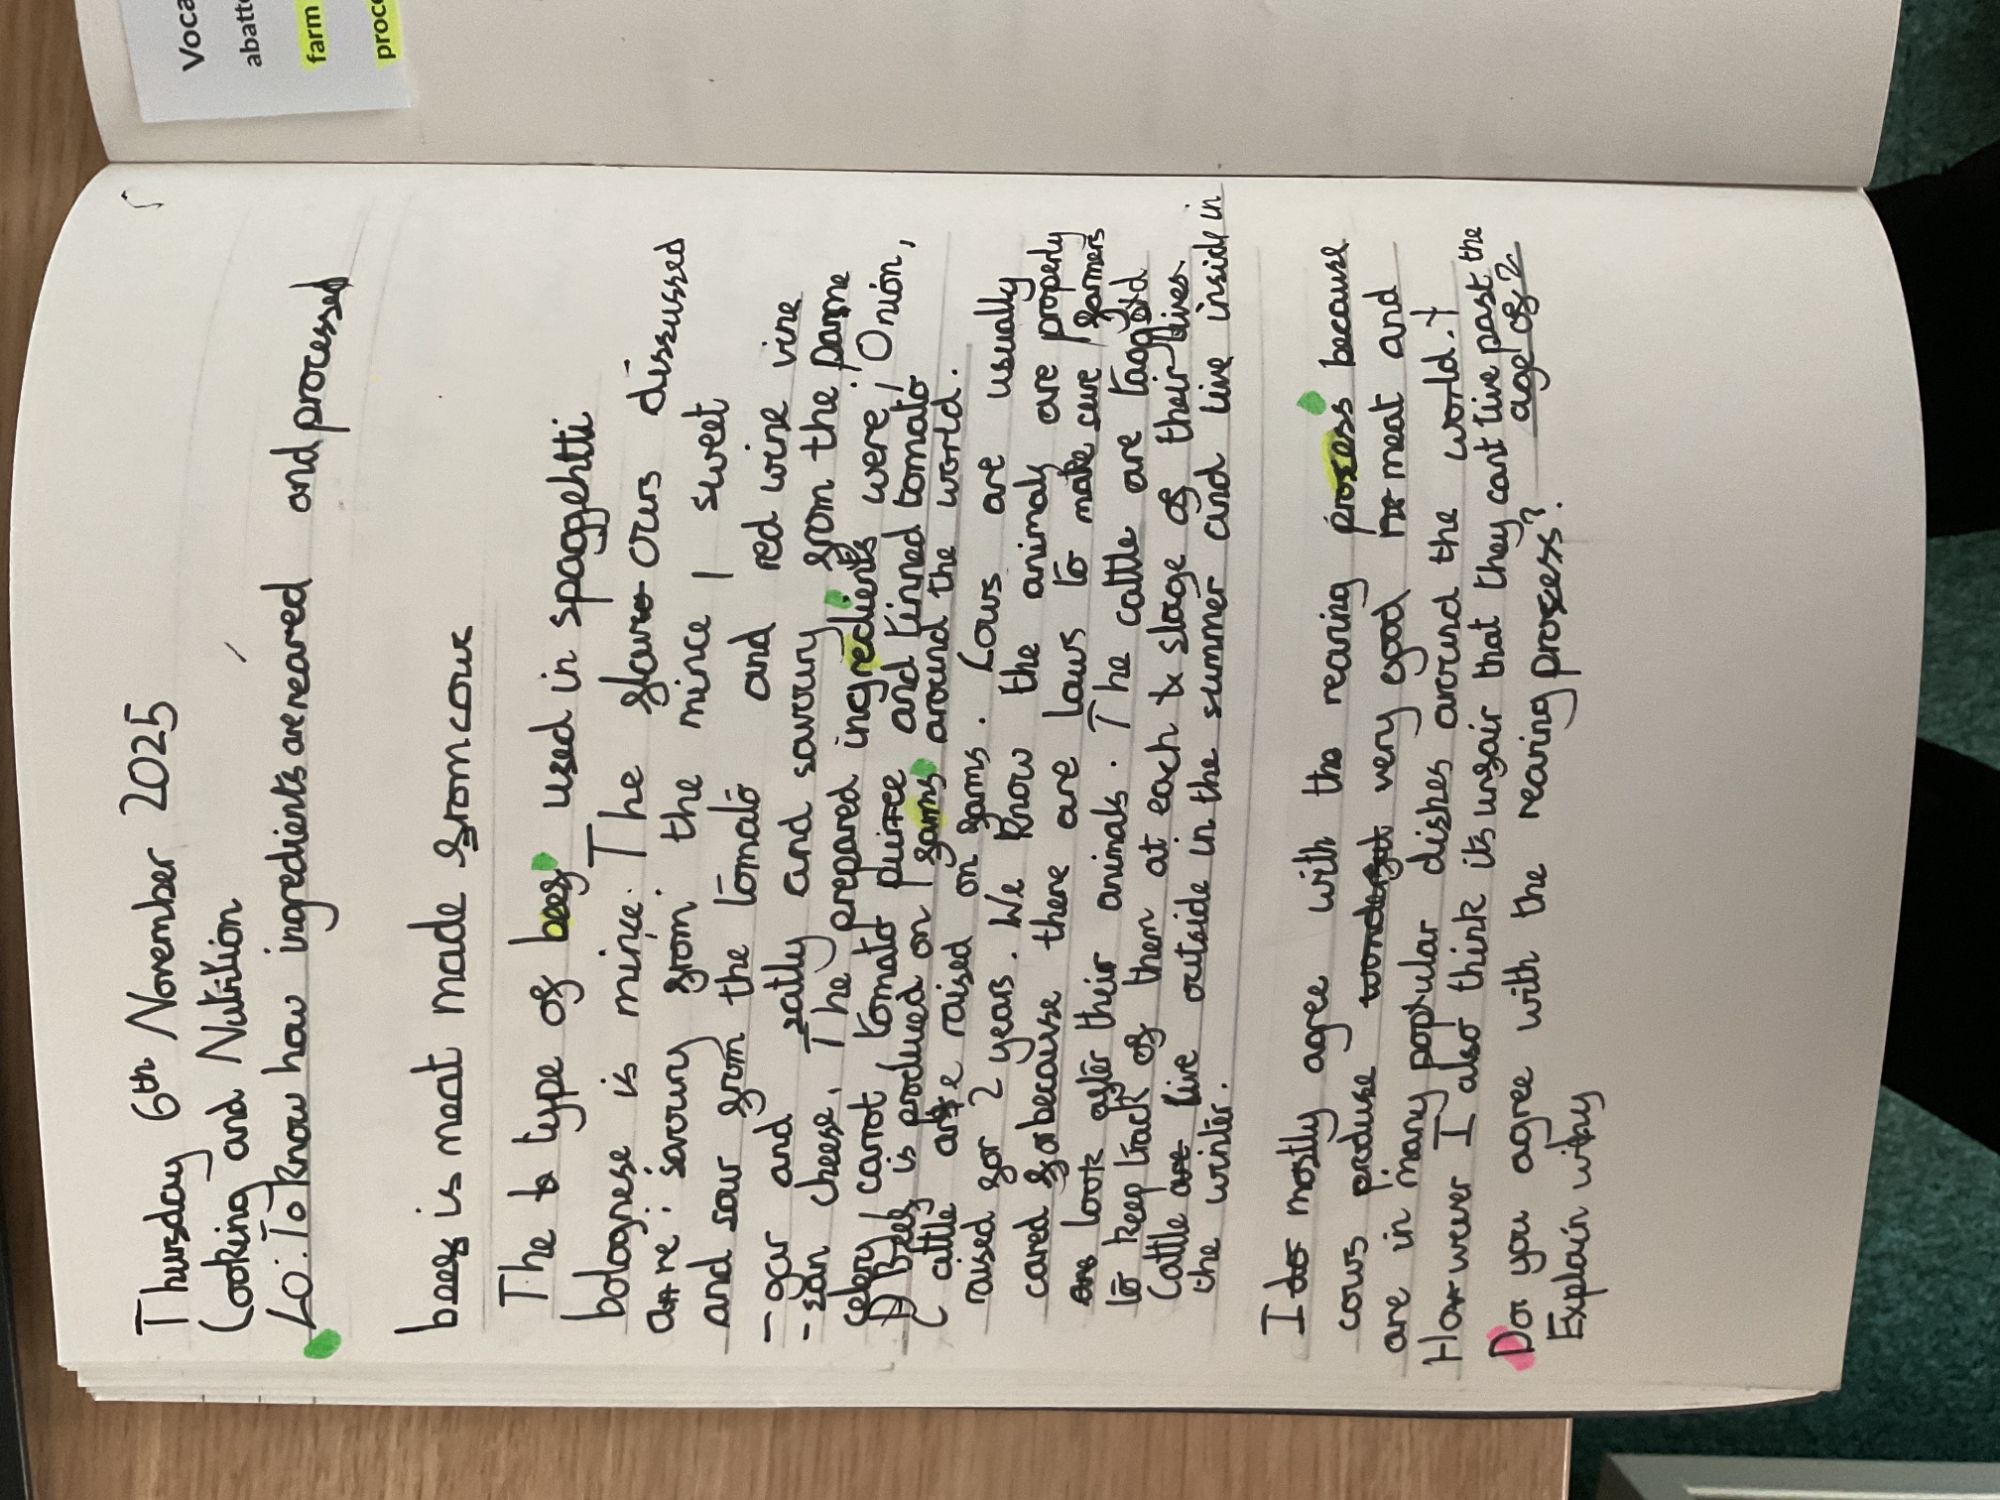 Voca
abatt
farm
proce
Thursday 6th November 2025
Cooking and Nutrition
LO: To know how ingredients are reared and processed
beef is meat made from cows
The type of beef used in spaggehtti
bolognese is mince. The flavours disussed
are: savoury from the mince, sweet
and sour from the tomato and red wine vine
-gar and salty and savoury from the parme
-san cheese. The prepared ingredients were; Onion,
celery, carrot, tomato puree and tinned tomato
Beef is produced on farms around the world.
Cattle are raised on farms. Cows are usually
raised for 2 years. We know the animals are properly
cared for because there are laws to make sure farmers
look after their animals. The cattle are tagged
to keep track of them at each stage of their lives.
Cattle live outside in the summer and live inside in
the winter.
I mostly agree with the rearing prosess because
cows produse very good meat and
are in many popular dishes around the world.
However I also think its unfair that they cant live past the
age of 2
Do you agree with the rearing prosess?
Explain why